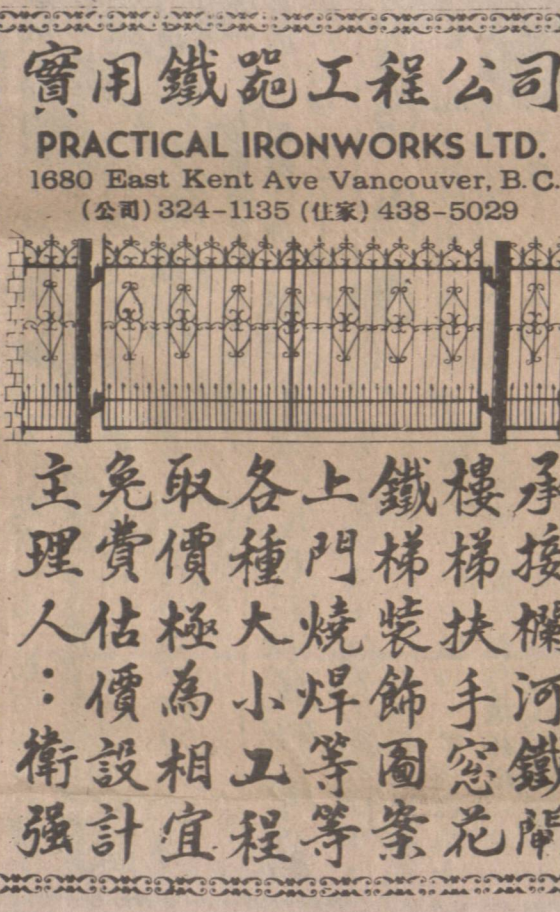 實用鐵器工程公司
PRACTICAL IRONWORKS LTD.
1680 East Kent Ave Vancouver, B.C.
(公司) 324-1135 (住家) 438-5029
承接欄河鐵閘
樓梯扶手窓花
鐵梯裝飾圖案
上門燒焊等等
各種大小工程
取價極為相宜
免費估價設計
主理人：衛强